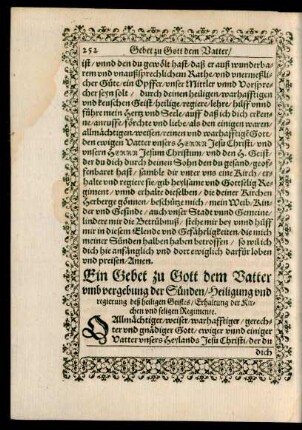 252 Gebet zu Gott dem Vatter/
ist/ vnnd den du gewölt hast/ daß er auß wunderba-
rem vnd vnaußsprechlichem Rathe/ vnd vnermeßli-
cher Güte/ ein Opffer/ vnser Mitler vnd Vorspre-
cher seyn solt/ durch deinen heiligen/ warhafftigen
vnd keuschen Geist/ heilige/ regiere/ lehre/ hilff vnnd
führe mein Hertz vnd Seele/ auff daß ich dich erken-
ne/ anruffe/ förchte vnd liebe/ als den einigen waren/
allmächtigen/ weisen/ reinen vnd warhafftigē Gott/
den ewigen Vatter vnsers HERRN Jesu Christi/ vnd
vnsern HERRN Jesum Christum/ vnd den H. Geist/
der du dich durch deinen Sohn den du gesand/ geof-
fenbaret hast/ samble dir vnter vns eine Kirch/ er-
halte vnd regiere sie/ gib heylsame vnd Gottselige Re-
giment/ vnnd erhalte dieselben/ die deiner Kirchen
Herberge gönnen/ beschütze mich/ mein Weib/ Kin-
der vnd Gesinde/ auch vnser Stadt vnnd Gemeine/
lindere mir die Betrübnuß/ stehe mir bey vnnd hilff
mir in diesem Elende vnd Gefährligkeiten/ die mich
meiner Sünden halben haben betroffen/ so wil ich
dich hie anfänglich vnd dort ewiglich darfür loben
vnd preisen/ Amen.
Ein Gebet zu Gott dem Vatter
vmb vergebung der Sünden/ Heiligung vnd
regierung deß heiligen Geistes/ Erhaltung der Kir-
chen vnd seligen Regimente.
O Allmächtiger/ weiser/ warhafftiger/ gerech-
ter vnd gnädiger Gott/ ewiger vnnd einiger
Vatter vnsers Heylands Jesu Christi/ der du
dich